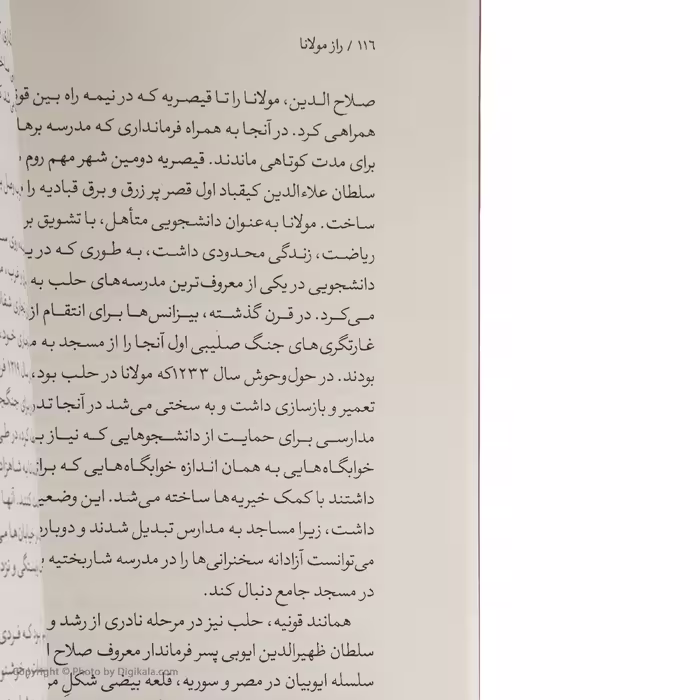 ۱۱۶ / راز مولانا
صلاح الدین، مولانا را تا قیصریه که در نیمه راه بین
همراهی کرد. در آنجا به همراه فرمانداری که مدرسه
برای مدت کوتاهی ماندند. قیصریه دومین شهر مهم روم
سلطان علاءالدین کیقباد اول قصر پر زرق و برق قبادیه را
ساخت. مولانا به‌عنوان دانشجویی متأهل، با تشویق
ریاضت، زندگی محدودی داشت، به طوری که در
دانشجویی در یکی از معروف‌ترین مدرسه‌های حلب به
می‌کرد. در قرن گذشته، بیزانس‌ها برای انتقام از
غارتگری‌های جنگ صلیبی اول آنجا را از مسجد به
بودند. در حول‌وحوش سال ۱۲۳۳که مولانا در حلب بود،
تعمیر و بازسازی داشت و به سختی می‌شد در آنجا
مدارسی برای حمایت از دانشجوهایی که نیاز
خوابگاه‌هایی به همان اندازه خوابگاه‌هایی که
داشتند با کمک خیریه‌ها ساخته می‌شد. این
داشت، زیرا مساجد به مدارس تبدیل شدند و
می‌توانست آزادانه سخنرانی‌ها را در مدرسه شاربختیه
در مسجد جامع دنبال کند.
همانند قونیه، حلب نیز در مرحله نادری از رشد و
سلطان ظهیرالدین ایوبی پسر فرماندار معروف صلاح
سلسله ایوبیان در مصر و سوریه، قلعه بیضی شکل
Copyright © Photo by Digikala.com